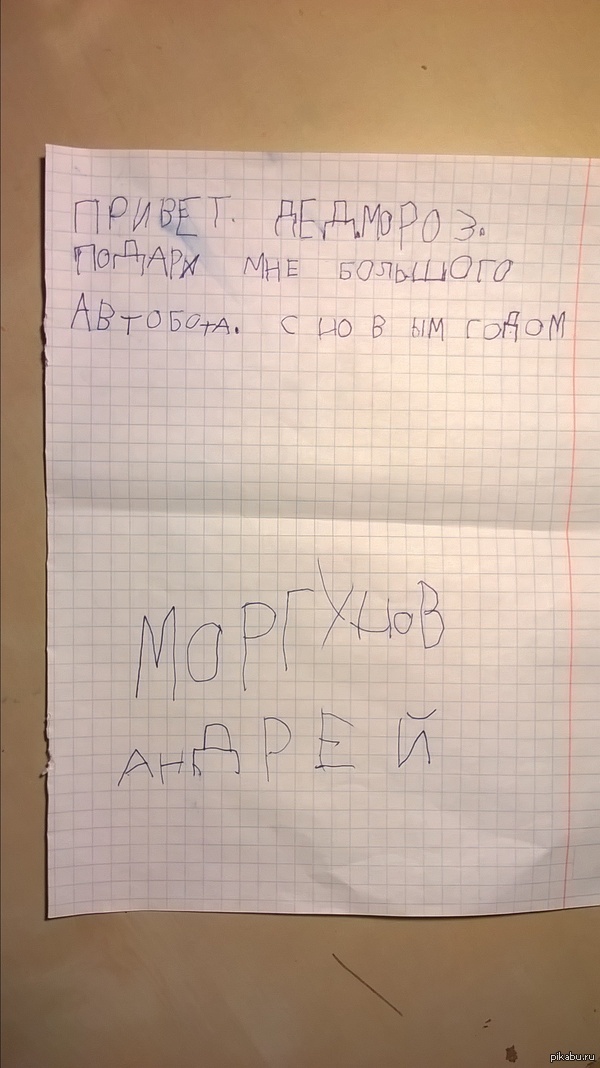 ПРИВЕТ. ДЕДМОРОЗ.
ПОДАРИ МНЕ БОЛЬШОГО
АВТОБОТА. С НОВЫМ ГОДОМ
МОРГУНОВ
АНДРЕЙ
pikabu.ru